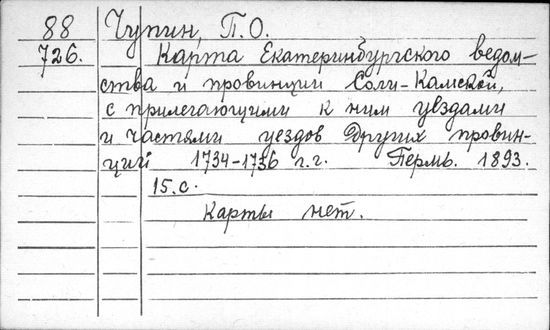 88 Чупин, П.О.
726. Карта Екатеринбургского ведом-
ства и провинции Соли-Камской,
с прилегающими к ним уездами
и частями уездов других провин-
ций 1734-1736 г.г. Пермь. 1893.
15.с.
Карты нет.